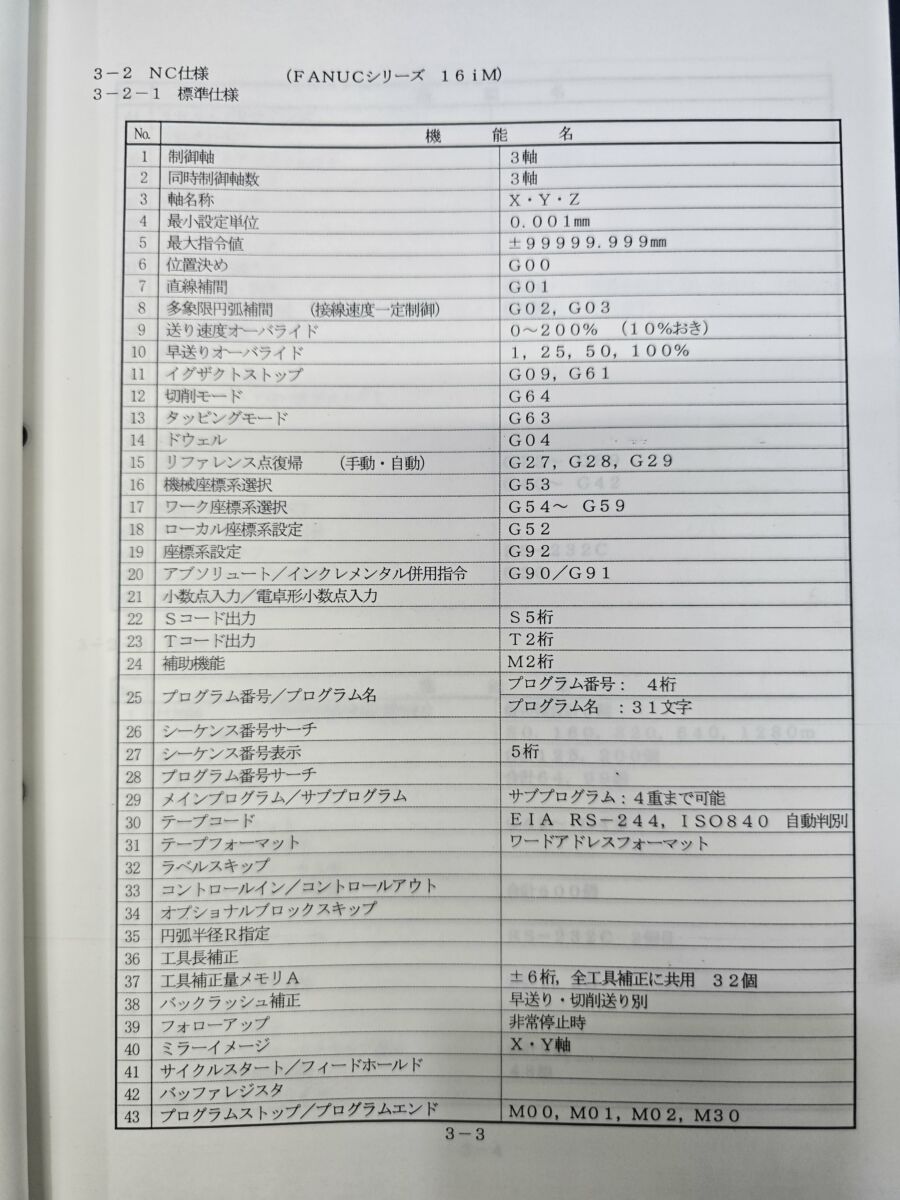 3-2 NC仕様 (FANUCシリーズ 16iM)
3-2-1 標準仕様
No. 機能名
1 制御軸 3軸
2 同時制御軸数 3軸
3 軸名称 X・Y・Z
4 最小設定単位 0.001㎜
5 最大指令値 ±99999.999㎜
6 位置決め G00
7 直線補間 G01
8 多象限円弧補間 (接線速度一定制御) G02, G03
9 送り速度オーバライド 0～200% (10%おき)
10 早送りオーバライド 1, 25, 50, 100%
11 イグザクトストップ G09, G61
12 切削モード G64
13 タッピングモード G63
14 ドウェル G04
15 リファレンス点復帰 (手動・自動) G27, G28, G29
16 機械座標系選択 G53
17 ワーク座標系選択 G54～ G59
18 ローカル座標系設定 G52
19 座標系設定 G92
20 アブソリュート／インクレメンタル併用指令 G90／G91
21 小数点入力／電卓形小数点入力
22 Sコード出力 S5桁
23 Tコード出力 T2桁
24 補助機能 M2桁
25 プログラム番号／プログラム名 プログラム番号： 4桁
プログラム名 ：31文字
26 シーケンス番号サーチ
27 シーケンス番号表示 5桁
28 プログラム番号サーチ
29 メインプログラム／サブプログラム サブプログラム：4重まで可能
30 テープコード EIA RS-244, ISO840 自動判別
31 テープフォーマット ワードアドレスフォーマット
32 ラベルスキップ
33 コントロールイン／コントロールアウト
34 オプショナルブロックスキップ
35 円弧半径R指定
36 工具長補正
37 工具補正量メモリA ±6桁, 全工具補正に共用 32個
38 バックラッシュ補正 早送り・切削送り別
39 フォローアップ 非常停止時
40 ミラーイメージ X・Y軸
41 サイクルスタート／フィードホールド
42 バッファレジスタ
43 プログラムストップ／プログラムエンド M00, M01, M02, M30
3-3